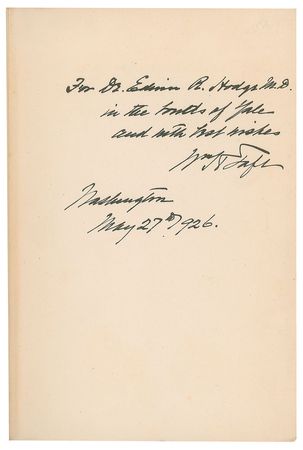 For Dr. Edwin R. Hodge M.D.
in the bonds of Yale
and with best wishes
Wm H Taft
Washington
May 27th 1926.